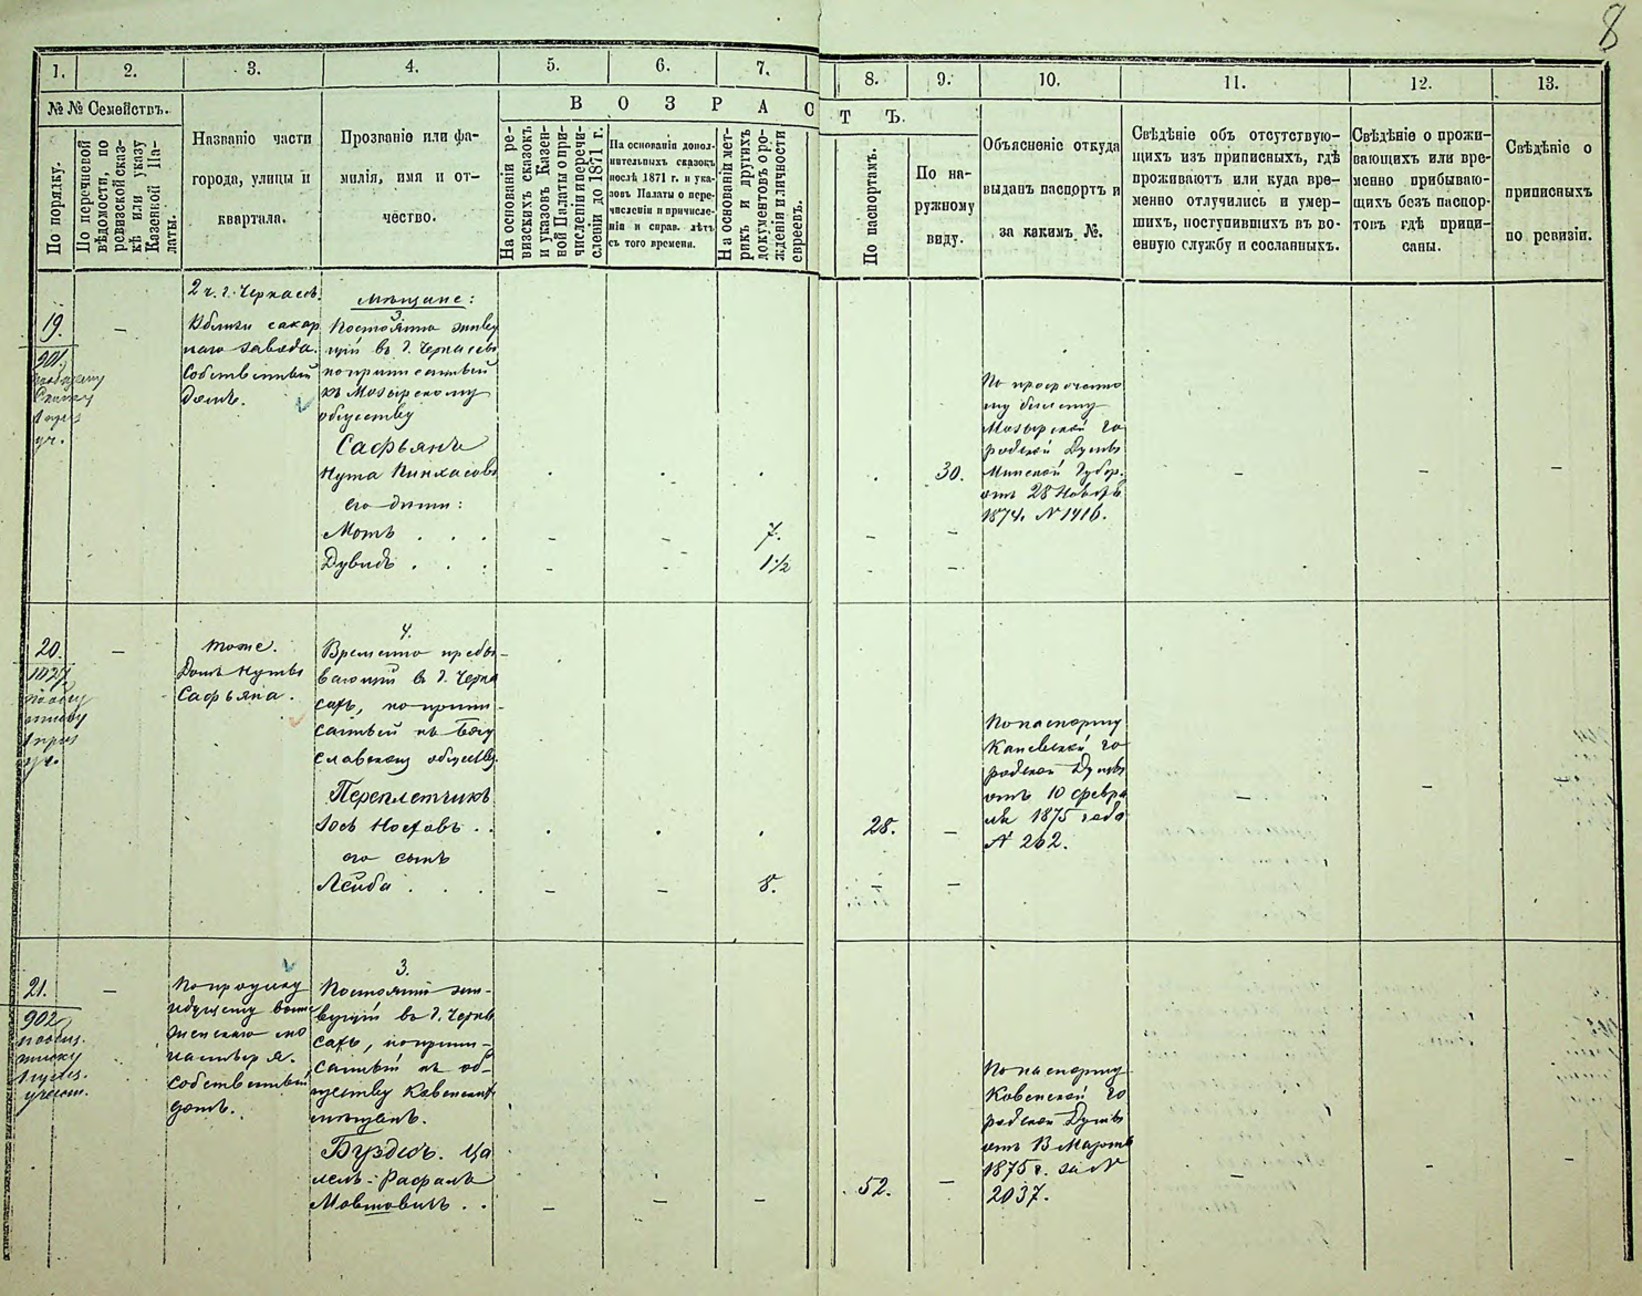 8
1. 2. 3. 4. 5. 6. 7. 8. 9. 10. 11. 12. 13.
№ № Семействъ.
В О З Р А С Т Ъ.
По порядку.
По перечневой
вѣдомости, по
ревизской сказ-
кѣ или указу
Казенной Па-
латы.
Названіе части
города, улицы и
квартала.
Прозваніе или фа-
милія, имя и от-
чество.
На основаніи ре-
визскихъ сказокъ
и указовъ Казен-
ной Палаты о при-
численіи и перечи-
сленіи до 1871 г.
На основаніи допол-
нительныхъ сказокъ
послѣ 1871 г. и ука-
зовъ Палаты о пере-
численіи и причисле-
ніи и справ. лѣтъ
съ того времени.
На основаніи мет-
рикъ и другихъ
документовъ о ро-
жденіи и личности
евреевъ.
По паспортамъ.
По на-
ружному
виду.
Объясненіе откуда
выданъ паспортъ и
за какимъ №.
Свѣдѣніе объ отсутствую-
щихъ изъ приписныхъ, гдѣ
проживаютъ или куда вре-
менно отлучились и умер-
шихъ, поступившихъ въ во-
енную службу и сосланныхъ.
Свѣдѣніе о прожи-
вающихъ или вре-
менно прибываю-
щихъ безъ паспор-
товъ гдѣ припи-
саны.
Свѣдѣніе о
приписныхъ
по ревизіи.
19.
901.
—
2 ч. г. Черкасъ.
Вблизи сахар
наго завода.
Собственный
домъ.
Мѣщане:
3
Постоянно живу
щій въ г. Черкасахъ
но приписанный
къ Мозырскому
обществу
Сафьянъ
Нута Пинхасовъ
его дѣти:
Мотъ . . .
Дувидъ . . .
7.
1 ½
30.
По просроченно
му билету
Мозырской го
родской Думы
Минской Губер.
отъ 28 Ноября
1874. № 1416.
20.
1027.
—
тоже.
Домъ Нуты
Сафьяна.
4.
Временно пребы-
вающій въ г. Черка
сахъ, но припи-
санный къ Богу
славскому обществу.
Переплетчикъ
Іось Носовъ . .
его сынъ
Лейба . . .
8.
28.
По паспорту
Каневской го
родской Думы
отъ 10 февра
ля 1875 года
№ 262.
21.
902.
—
По проулку
идущему возле
женскаго мо
настыря.
собственный
домъ.
3.
Постоянно жи-
вущій въ г. Черка
сахъ, но припи-
санный къ об-
ществу Ковенскихъ
мѣщанъ.
Бурдесъ. Ца
лель-Рафаль
Мовшовичъ . .
52.
По паспорту
Ковенской го
родской Думы
отъ 13 Марта
1875 г. за №
2037.